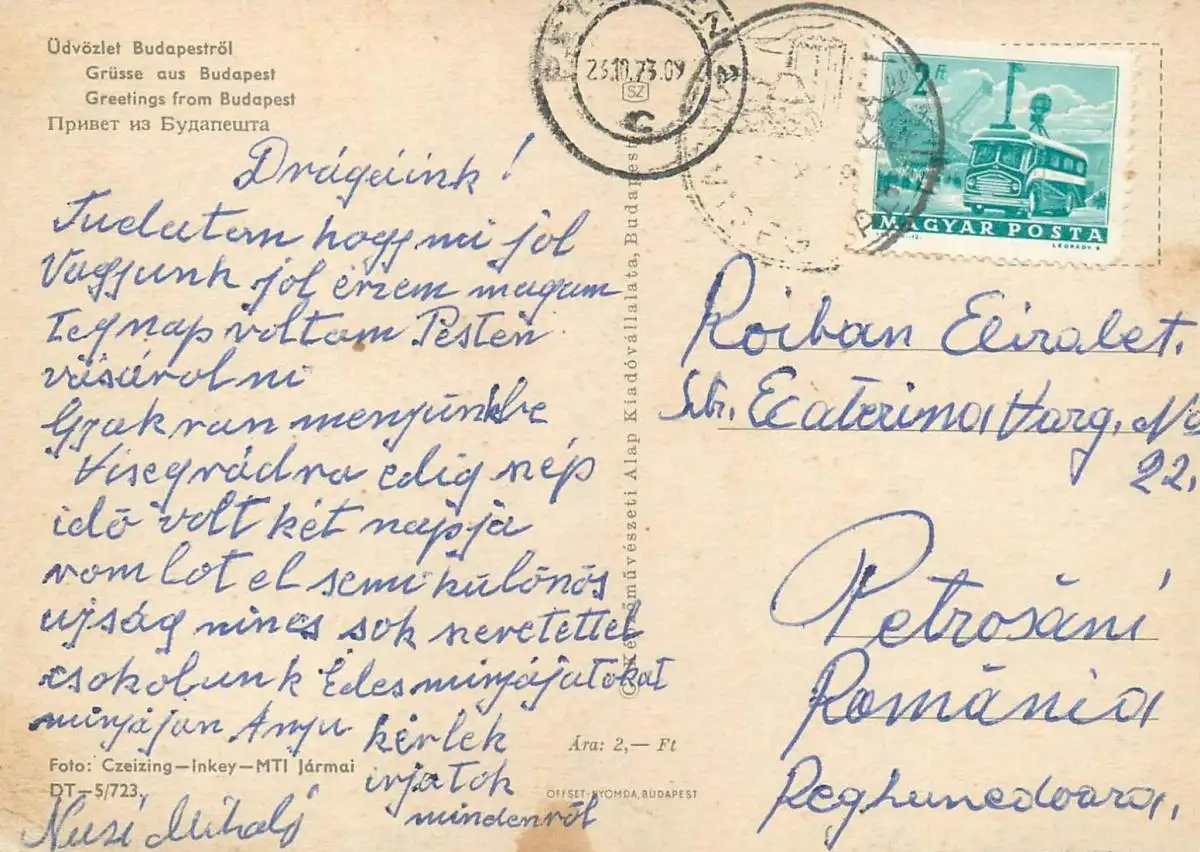 Üdvözlet Budapestről
Grüsse aus Budapest
Greetings from Budapest
Привет из Будапешта
Drágáink!
Tudatom hogy mi jól
Vagyunk jól érzem magam
tegnap voltam Pesten
vásárolni
Gyakran menyünk be
Visegrádra edig szép
idő volt két napja
romlot el semi külőnős
ujság nincs sok szeretettel
csokolunk Édes minyájatokat
minyájan Anyu
kérlek
irjatok
mindenről
Nusi Mihály
Foto: Czeizing—Inkey—MTI Jármai
DT—5/723.
Ára: 2,— Ft
OFFSET-NYOMDA, BUDAPEST
© Képzőművészeti Alap Kiadóvállalata, Budapest
23.10.73.09
SZ
C
2 Ft
MAGYAR POSTA
LÉGRÁDY S
Roiban
Str. Ecaterina Varg. No
22.
Petrosáni
Románia
Reghunedoara.